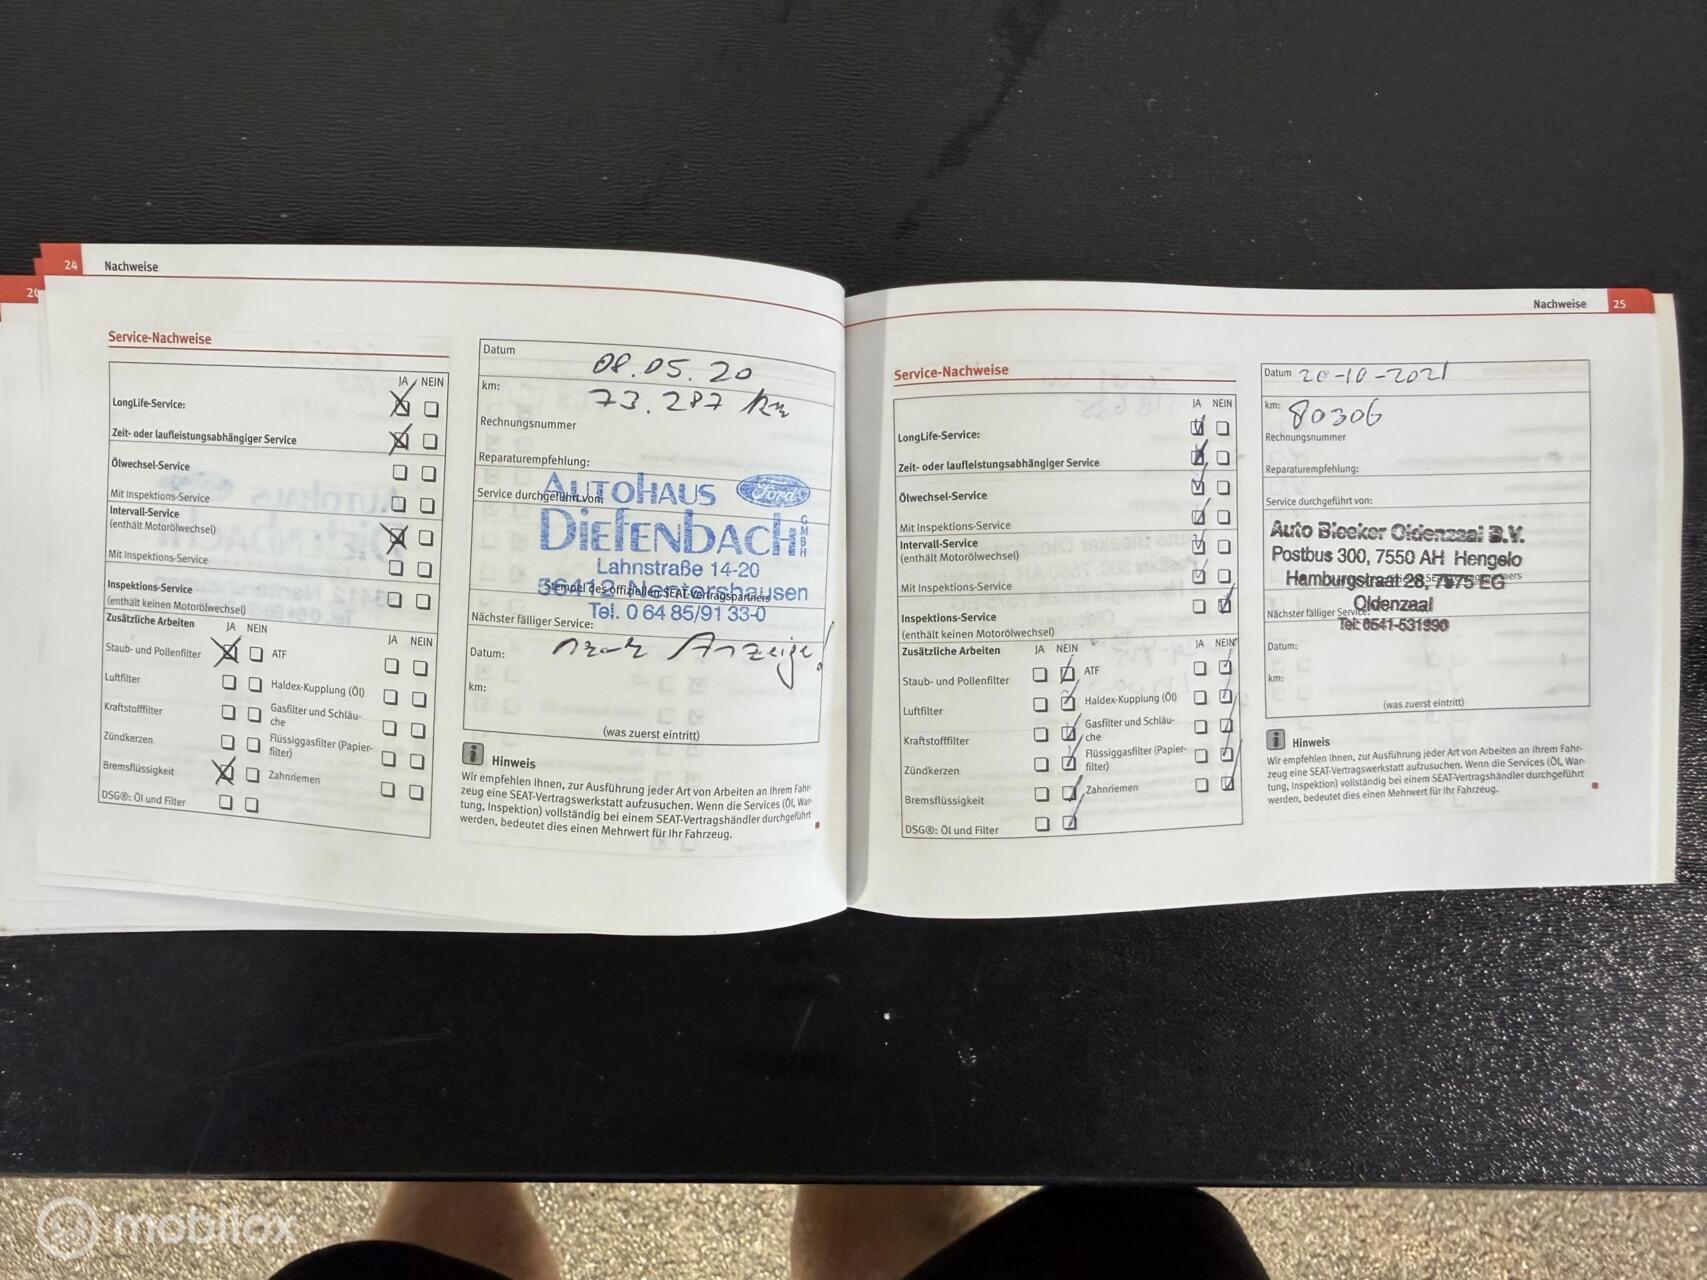 24 Nachweise
20
Service-Nachweise
JA NEIN
LongLife-Service:
Zeit- oder laufleistungsabhängiger Service
Ölwechsel-Service
Mit Inspektions-Service
Intervall-Service
(enthält Motorölwechsel)
Mit Inspektions-Service
Inspektions-Service
(enthält keinen Motorölwechsel)
Zusätzliche Arbeiten
JA NEIN
JA NEIN
Staub- und Pollenfilter
ATF
Luftfilter
Haldex-Kupplung (Öl)
Kraftstofffilter
Gasfilter und Schläu-
che
Zündkerzen
Flüssiggasfilter (Papier-
filter)
Bremsflüssigkeit
Zahnriemen
DSG®: Öl und Filter
Datum
08.05.20
km:
73.287 km
Rechnungsnummer
Reparaturempfehlung:
Service durchgeführt von:
AUTOHAUS Ford
DIEFENBACH GMBH
Lahnstraße 14-20
56412 Nentershausen
Stempel des offiziellen SEAT-Vertragspartners
Tel. 0 64 85/91 33-0
Nächster fälliger Service:
Datum:
nach Anzeige!
km:
(was zuerst eintritt)
Hinweis
Wir empfehlen Ihnen, zur Ausführung jeder Art von Arbeiten an Ihrem Fahr-
zeug eine SEAT-Vertragswerkstatt aufzusuchen. Wenn die Services (Öl, War-
tung, Inspektion) vollständig bei einem SEAT-Vertragshändler durchgeführt
werden, bedeutet dies einen Mehrwert für Ihr Fahrzeug.
Nachweise 25
Service-Nachweise
JA NEIN
LongLife-Service:
Zeit- oder laufleistungsabhängiger Service
Ölwechsel-Service
Mit Inspektions-Service
Intervall-Service
(enthält Motorölwechsel)
Mit Inspektions-Service
Inspektions-Service
(enthält keinen Motorölwechsel)
Zusätzliche Arbeiten
JA NEIN
JA NEIN
Staub- und Pollenfilter
ATF
Luftfilter
Haldex-Kupplung (Öl)
Kraftstofffilter
Gasfilter und Schläu-
che
Zündkerzen
Flüssiggasfilter (Papier-
filter)
Bremsflüssigkeit
Zahnriemen
DSG®: Öl und Filter
Datum 20-10-2021
km: 80306
Rechnungsnummer
Reparaturempfehlung:
Service durchgeführt von:
Auto Bleeker Oldenzaal B.V.
Postbus 300, 7550 AH Hengelo
Hamburgstraat 28, 7575 EG
Oldenzaal
Nächster fälliger Service:
Tel: 0541-531990
Datum:
km:
(was zuerst eintritt)
Hinweis
Wir empfehlen Ihnen, zur Ausführung jeder Art von Arbeiten an Ihrem Fahr-
zeug eine SEAT-Vertragswerkstatt aufzusuchen. Wenn die Services (Öl, War-
tung, Inspektion) vollständig bei einem SEAT-Vertragshändler durchgeführt
werden, bedeutet dies einen Mehrwert für Ihr Fahrzeug.
mobilox